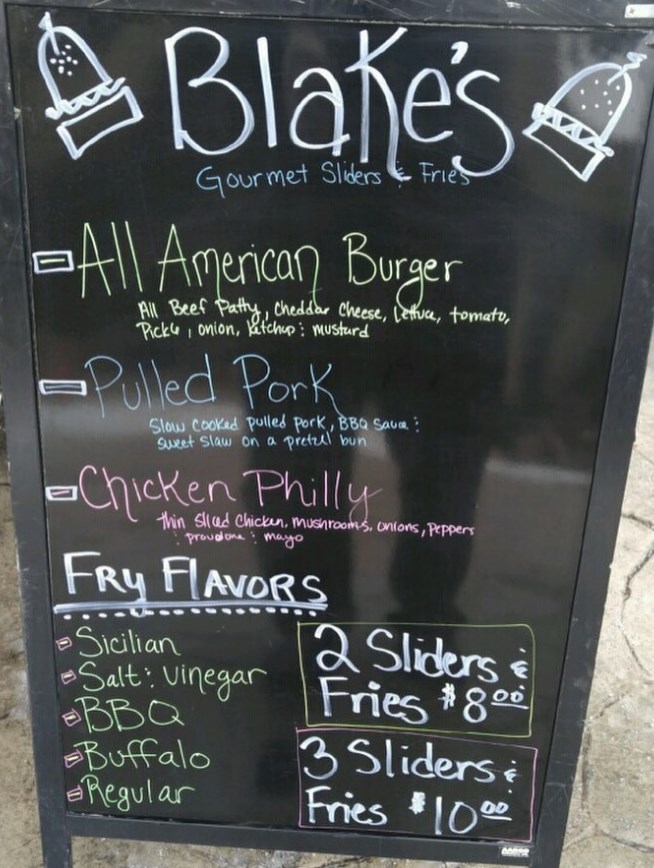 Blake's
Gourmet Sliders & Fries
All American Burger
All Beef Patty, Cheddar Cheese, Lettuce, tomato,
Pickle, onion, Ketchup & mustard
Pulled Pork
Slow Cooked Pulled Pork, BBQ Sauce &
Sweet Slaw on a pretzel bun
Chicken Philly
Thin Sliced Chicken, mushrooms, onions, Peppers
& provolone & mayo
FRY FLAVORS
Sicilian
Salt & Vinegar
BBQ
Buffalo
Regular
2 Sliders &
Fries $8.00
3 Sliders &
Fries $10.00